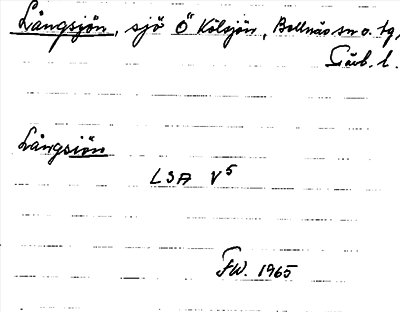 Långsjön, sjö Ö Kölsjön, Bollnäs sn o. tg,
Gävb. l.
Långsjön
LSA V5
FW. 1965